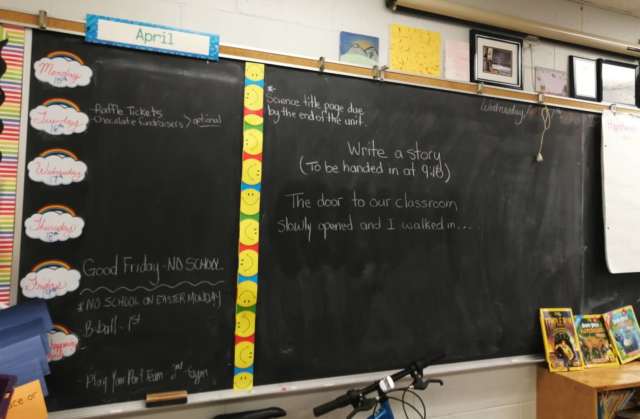 April
Monday
Tuesday
- Raffle Tickets
- Chocolate fundraisers > optional
Wednesday
Thursday
Friday
Good Friday - NO SCHOOL
* NO SCHOOL ON EASTER MONDAY
B-ball - 1st
- Play Your Part Team - 2nd - Gym
*
Science title page due
by the end of the unit.
Wednesday
Write a story
(To be handed in at 9:45)
The door to our classroom
slowly opened and I walked in...